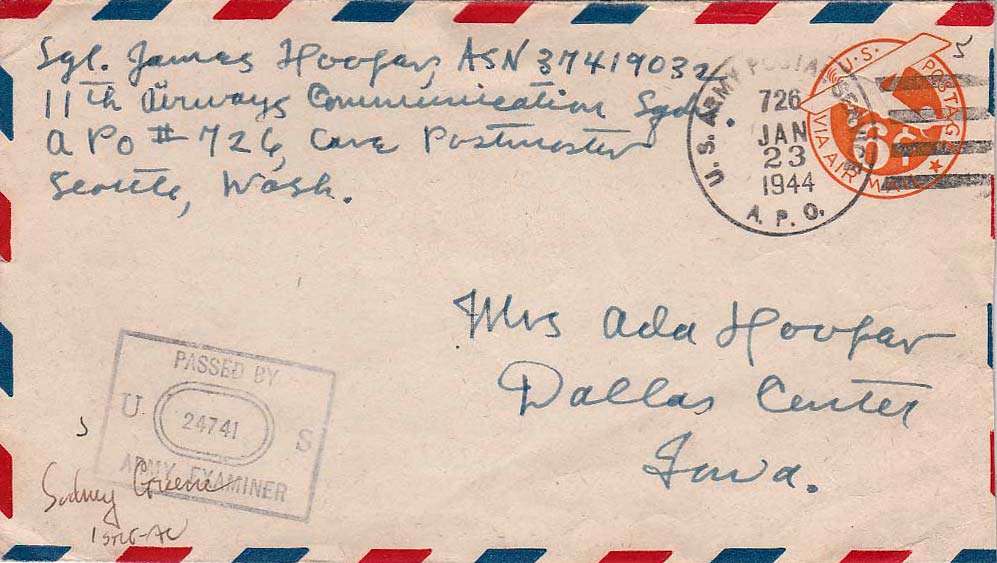 Sgt. James Hoofar, ASN 37419032
11th Airways Communication Sqdn.
APO # 726, Care Postmaster
Seattle, Wash.
U.S. ARMY POSTAL SERVICE
726
JAN
23
1944
A.P.O.
U.S. POSTAGE
6¢
VIA AIR MAIL
5
Mrs Ada Hoofar
Dallas Center
Iowa.
PASSED BY
U S
24741
ARMY EXAMINER
Sydney Greene